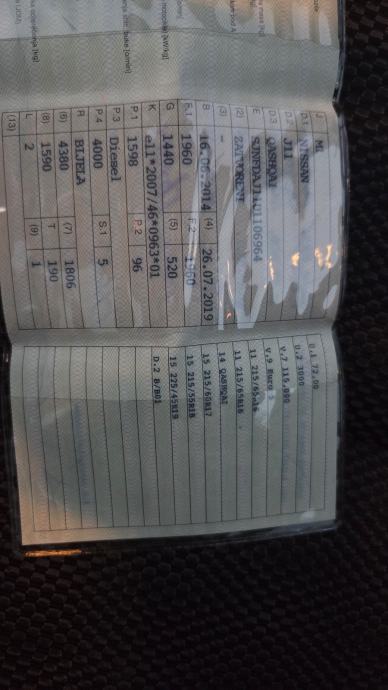 J M1
D.1 NISSAN
D.2 J11
D.3 QASHQAI
E SJNFDAJ11U1106964
(2) ZATVORENI
(3) -
B 16.06.2014 (4) 26.07.2019
F.1 1960 F.2 1960
G 1440 (5) 520
K e11*2007/46*0963*01
P.1 1598 P.2 96
P.3 Diesel
P.4 4000 S.1 5
R BIJELA
(6) 4380 (7) 1806
(8) 1590 T 190
L 2 (9) 1
(13)
U.1 72.00
U.2 3000
V.7 115.000
V.9 Euro 5
11 215/65R16
11 215/65R16
14 QASHQAI
15 215/60R17
15 215/55R18
15 225/45R19
D.2 B/B01